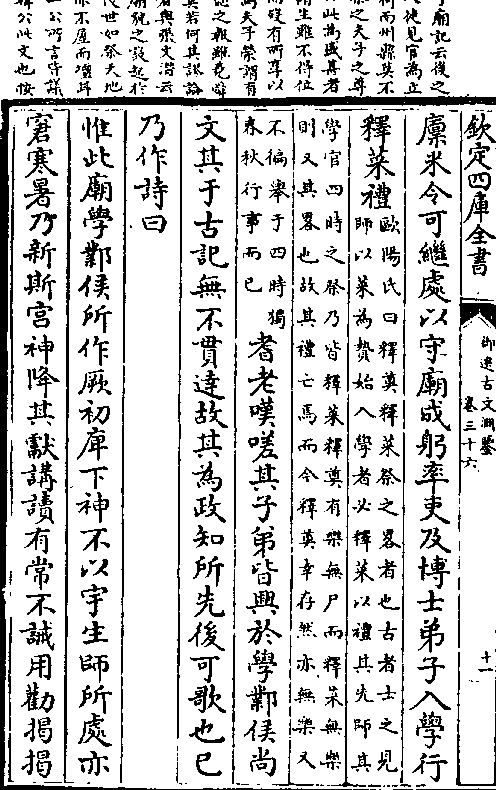 廟記云後之
人徒見官為立
而州縣莫不
祭之夫子之尊
此為盛甚者
生雖不得位
而沒有所享以
為夫子榮謂有
德之報雖堯舜
莫若何其謬論
者與張文潛云
廟貌之設起於
後世如祭天地
亦不屋而壇耳
二公所言皆據
韓公此文也按
欽定四庫全書
御選古文淵鑒
卷三十六
十一
廩米令可繼處以守廟成躬率吏及博士弟子入學行
釋菜禮歐陽氏曰釋奠釋菜祭之畧者也古者士之見
師以菜為贄始入學者必釋菜以禮其先師其
學官四時之祭乃皆釋菜釋奠有樂無尸而釋菜無樂
則又其畧也故其禮亡焉而今釋奠幸存然亦無樂又
不徧舉于四時獨
春秋行事而已
耆老嘆嗟其子弟皆興於學鄴侯尚
文其于古記無不貫達故其為政知所先後可歌也已
乃作詩曰
惟此廟學鄴侯所作厥初庳下神不以宇生師所處亦
窘寒暑乃新斯宮神降其獻講讀有常不誡用勸揭揭